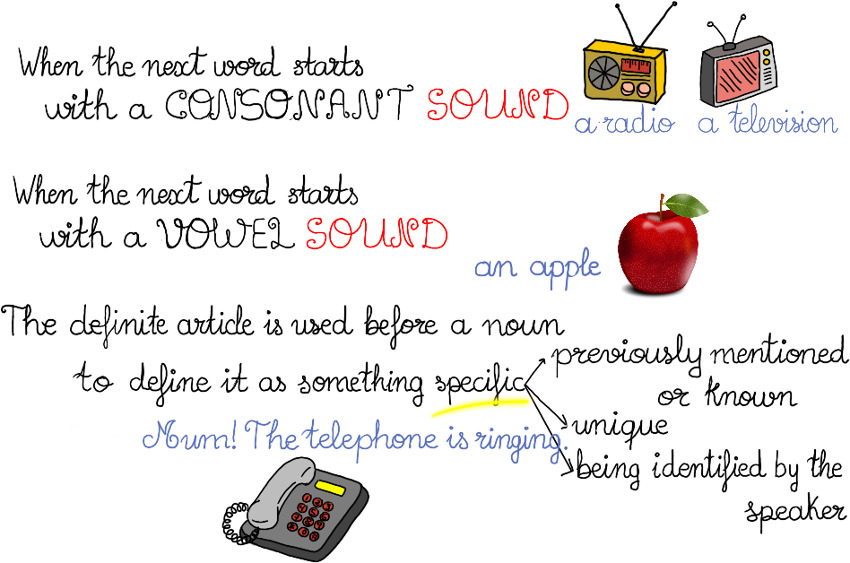 When the next word starts
with a CONSONANT SOUND
a radio
a television
When the next word starts
with a VOWEL SOUND
an apple
The definite article is used before a noun
to define it as something specific
previously mentioned
or known
unique
being identified by the
speaker
Mum! The telephone is ringing.